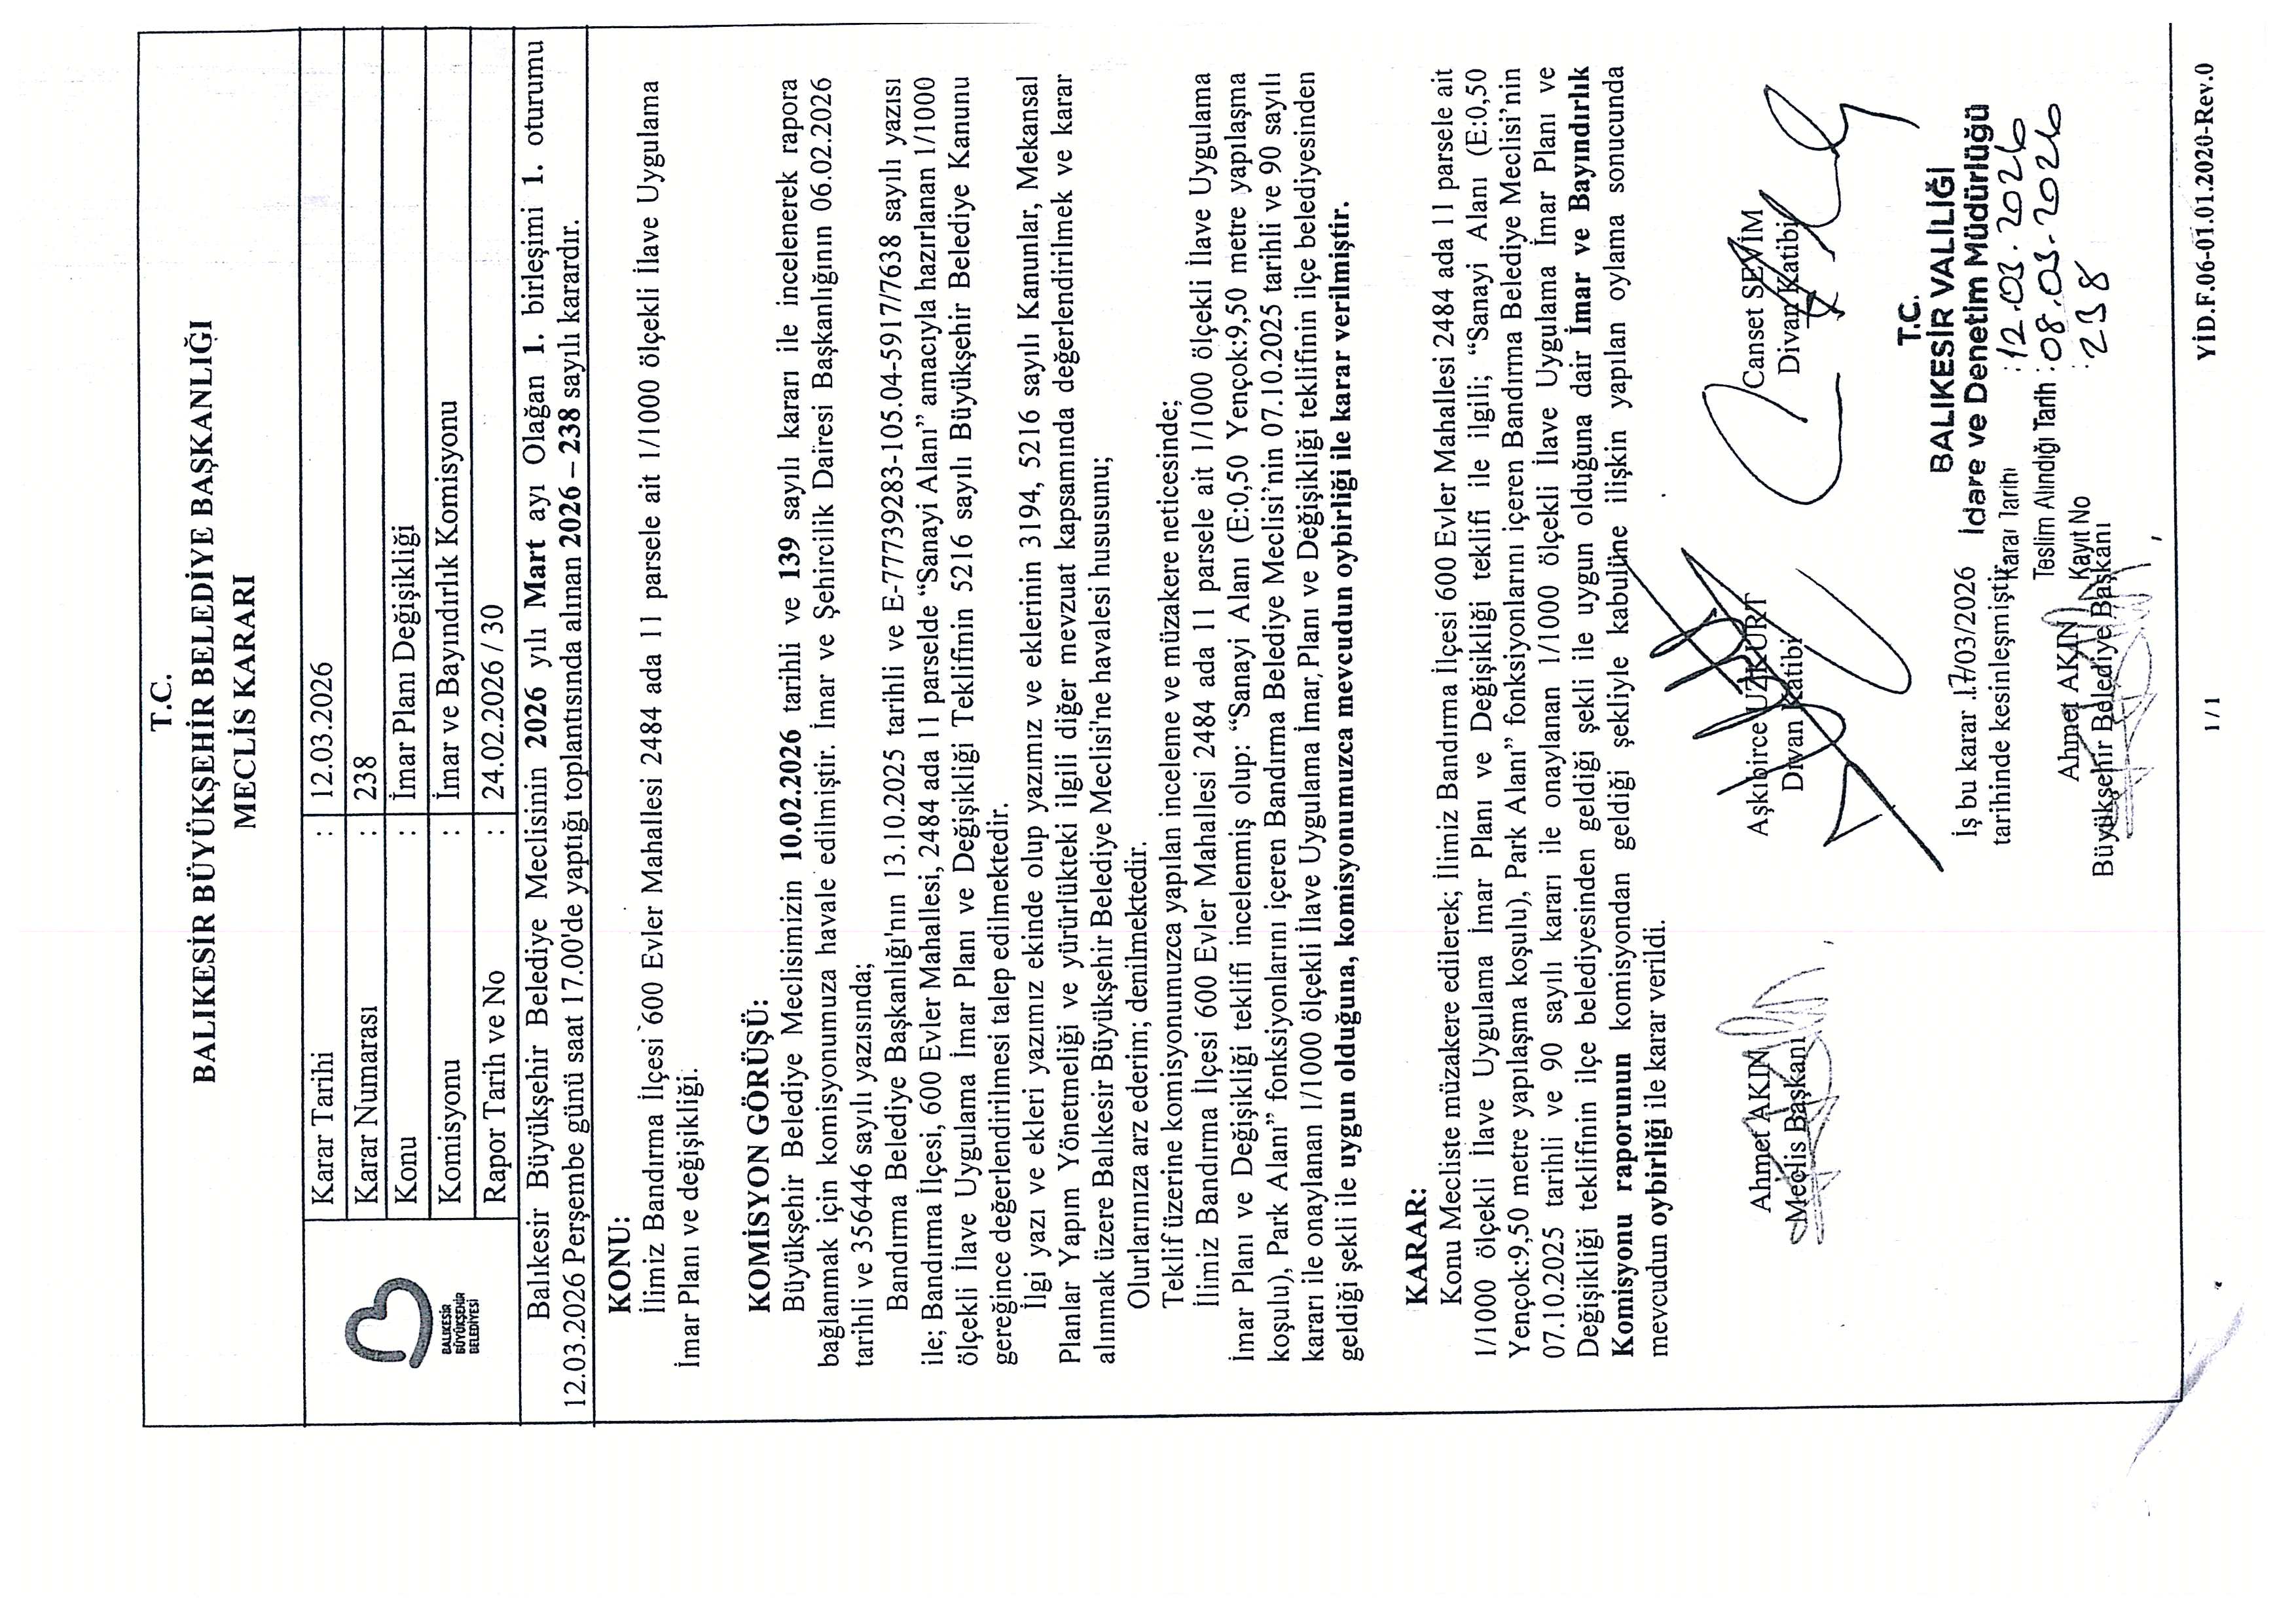 T.C.
BALIKESİR BÜYÜKŞEHİR BELEDİYE BAŞKANLIĞI
MECLİS KARARI
BALIKESİR
BÜYÜKŞEHİR
BELEDİYESİ
Karar Tarihi : 12.03.2026
Karar Numarası : 238
Konu : İmar Planı Değişikliği
Komisyonu : İmar ve Bayındırlık Komisyonu
Rapor Tarih ve No : 24.02.2026 / 30
Balıkesir Büyükşehir Belediye Meclisinin 2026 yılı Mart ayı Olağan 1. birleşimi 1. oturumu
12.03.2026 Perşembe günü saat 17.00'de yaptığı toplantısında alınan 2026 – 238 sayılı karardır.
KONU:
İlimiz Bandırma İlçesi 600 Evler Mahallesi 2484 ada 11 parsele ait 1/1000 ölçekli İlave Uygulama
İmar Planı ve değişikliği.
KOMİSYON GÖRÜŞÜ:
Büyükşehir Belediye Meclisimizin 10.02.2026 tarihli ve 139 sayılı kararı ile incelenerek rapora
bağlanmak için komisyonumuza havale edilmiştir. İmar ve Şehircilik Dairesi Başkanlığının 06.02.2026
tarihli ve 356446 sayılı yazısında;
Bandırma Belediye Başkanlığı'nın 13.10.2025 tarihli ve E-77739283-105.04-5917/7638 sayılı yazısı
ile; Bandırma İlçesi, 600 Evler Mahallesi, 2484 ada 11 parselde “Sanayi Alanı” amacıyla hazırlanan 1/1000
ölçekli İlave Uygulama İmar Planı ve Değişikliği Teklifinin 5216 sayılı Büyükşehir Belediye Kanunu
gereğince değerlendirilmesi talep edilmektedir.
İlgi yazı ve ekleri yazımız ekinde olup yazımız ve eklerinin 3194, 5216 sayılı Kanunlar, Mekansal
Planlar Yapım Yönetmeliği ve yürürlükteki ilgili diğer mevzuat kapsamında değerlendirilmek ve karar
alınmak üzere Balıkesir Büyükşehir Belediye Meclisi'ne havalesi hususunu;
Olurlarınıza arz ederim; denilmektedir.
Teklif üzerine komisyonumuzca yapılan inceleme ve müzakere neticesinde;
İlimiz Bandırma İlçesi 600 Evler Mahallesi 2484 ada 11 parsele ait 1/1000 ölçekli İlave Uygulama
İmar Planı ve Değişikliği teklifi incelenmiş olup: “Sanayi Alanı (E:0,50 Yençok:9,50 metre yapılaşma
koşulu), Park Alanı” fonksiyonlarını içeren Bandırma Belediye Meclisi’nin 07.10.2025 tarihli ve 90 sayılı
kararı ile onaylanan 1/1000 ölçekli İlave Uygulama İmar Planı ve Değişikliği teklifinin ilçe belediyesinden
geldiği şekli ile uygun olduğuna, komisyonumuzca mevcudun oybirliği ile karar verilmiştir.
KARAR:
Konu Mecliste müzakere edilerek; İlimiz Bandırma İlçesi 600 Evler Mahallesi 2484 ada 11 parsele ait
1/1000 ölçekli İlave Uygulama İmar Planı ve Değişikliği teklifi ile ilgili; “Sanayi Alanı (E:0,50
Yençok:9,50 metre yapılaşma koşulu), Park Alanı” fonksiyonlarını içeren Bandırma Belediye Meclisi’nin
07.10.2025 tarihli ve 90 sayılı kararı ile onaylanan 1/1000 ölçekli İlave Uygulama İmar Planı ve
Değişikliği teklifinin ilçe belediyesinden geldiği şekli ile uygun olduğuna dair İmar ve Bayındırlık
Komisyonu raporunun komisyondan geldiği şekliyle kabulüne ilişkin yapılan oylama sonucunda
mevcudun oybirliği ile karar verildi.
Ahmet AKIN
Meclis Başkanı
Aşkıbirce UZKURT
Divan Katibi
Canset SEVİM
Divan Katibi
İş bu karar 17/03/2026
tarihinde kesinleşmiştir.
Ahmet AKIN
Büyükşehir Belediye Başkanı
T.C.
BALIKESİR VALİLİĞİ
İdare ve Denetim Müdürlüğü
Karar Tarihi : 12.03.2026
Teslim Alındığı Tarih : 08.03.2026
Kayıt No : 238
1 / 1
YİD.F.06-01.01.2020-Rev.0